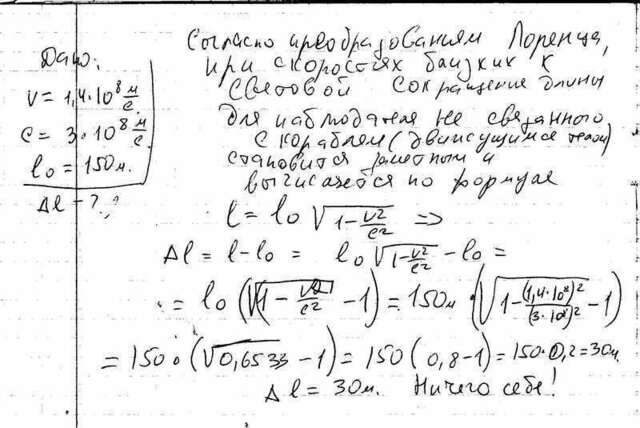 Дано:
v = 1,4·10⁸ м/с
c = 3·10⁸ м/с
l₀ = 150м.
Δl - ?
Согласно преобразованиям Лоренца,
при скоростях близких к
световой сокращение длины
для наблюдателя не связанного
с кораблем (движущимся телом)
становится заметным и
вычисляется по формуле
l = l₀ √(1 - v²/c²) =>
Δl = l - l₀ = l₀ √(1 - v²/c²) - l₀ =
= l₀ (√(1 - v²/c²) - 1) = 150м · (√(1 - (1,4·10⁸)²/(3·10⁸)²) - 1)
= 150·(√0,6533 - 1) = 150 (0,8-1) = 150·0,2 = 30м.
Δl = 30м. Ничего себе!